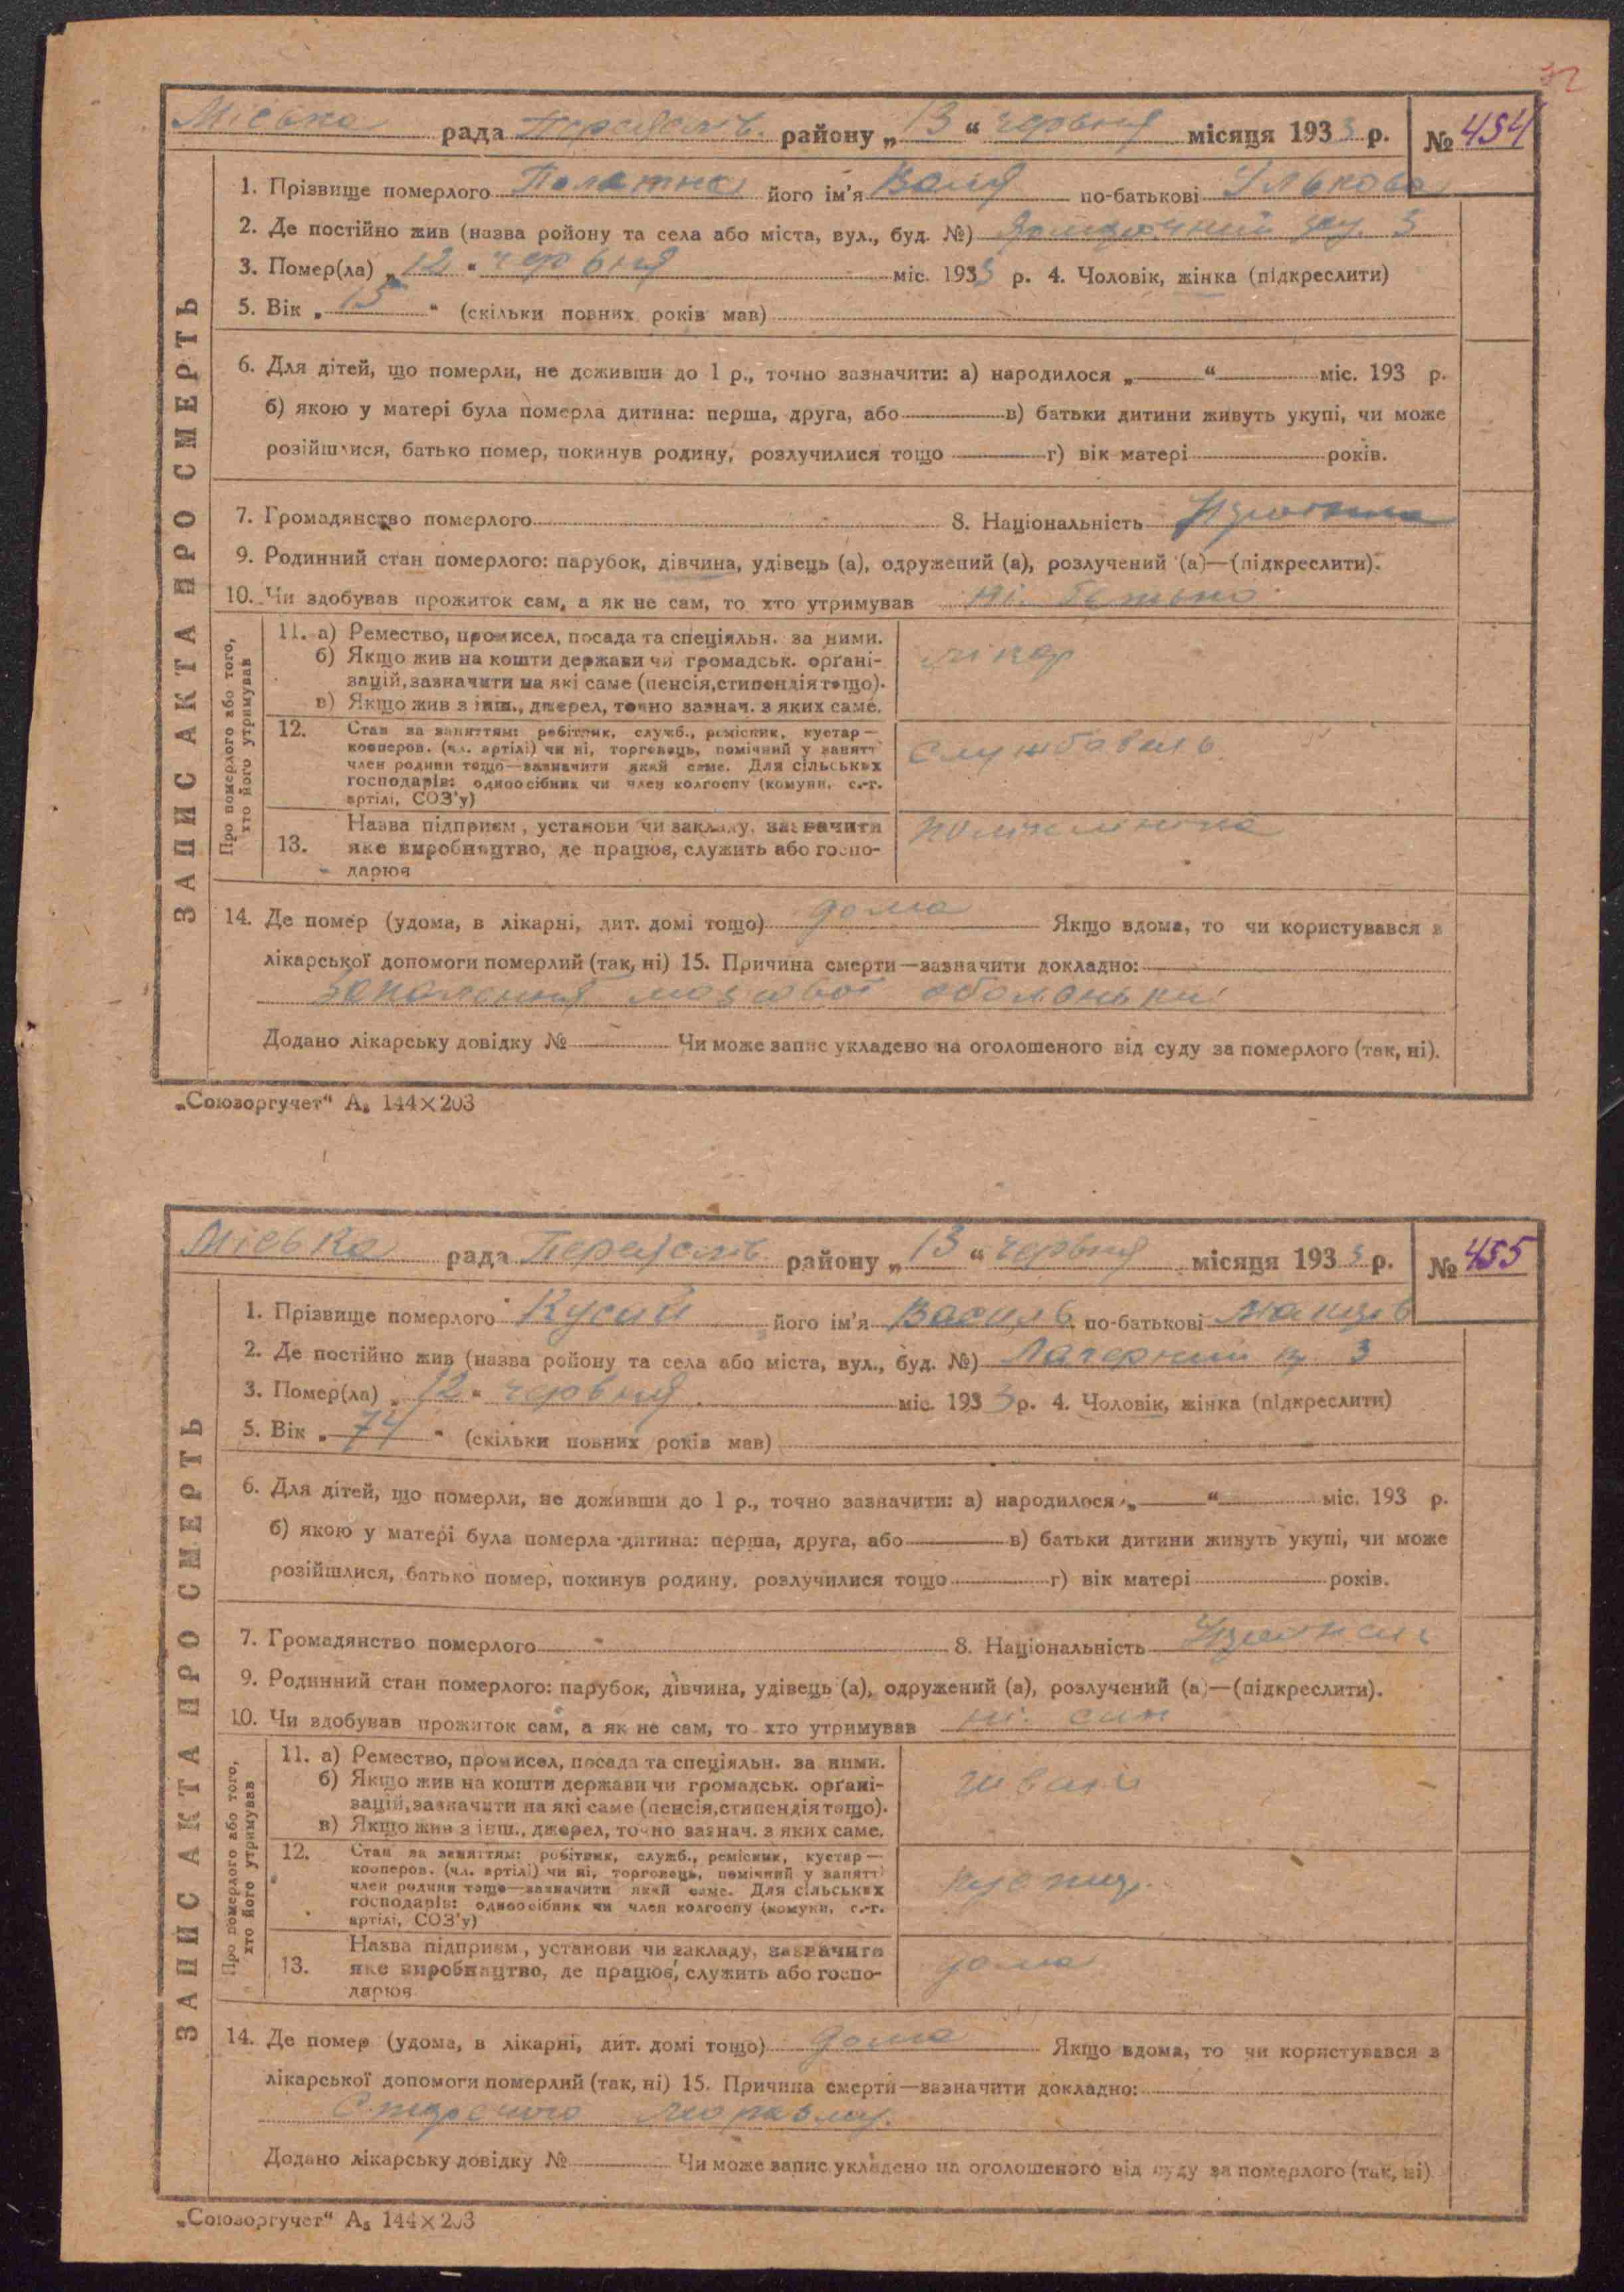 32
Міська рада Переяслів. району „13“ червня місяця 1933 р. № 454
ЗАПИС АКТА ПРО СМЕРТЬ
1. Прізвище померлого його ім'я по-батькові Ількова
2. Де постійно жив (назва ройону та села або міста, вул., буд. №) 3
3. Помер(ла) „12“ червня міс. 1933 р. 4. Чоловік, жінка (підкреслити)
5. Вік „15“ (скільки повних років мав)
6. Для дітей, що померли, не доживши до 1 р., точно зазначити: а) народилося „ “ міс. 193 р.
б) якою у матері була померла дитина: перша, друга, або в) батьки дитини живуть укупі, чи може
розійшлися, батько помер, покинув родину, розлучилися тощо г) вік матері років.
7. Громадянство померлого 8. Національність
9. Родинний стан померлого: парубок, дівчина, удівець (а), одружений (а), розлучений (а)—(підкреслити).
10. Чи здобував прожиток сам, а як не сам, то хто утримував ні. батько
Про померлого або того, хто його утримував
11. а) Ремество, промисел, посада та спеціяльн. за ними.
б) Якщо жив на кошти держави чи громадськ. органі-
зацій, зазначити на які саме (пенсія, стипендія тощо).
в) Якщо жив з інш., джерел, точно зазнач. з яких саме.
лікар
12. Стан за заняттям: робітник, служб., ремісник, кустар—
кооперов. (чл. артілі) чи ні, торговець, помічний у занятт
член родини тощо—зазначити який саме. Для сільських
господарів: одноосібник чи член колгоспу (комуни, с.-г.
артілі, СОЗ'у)
службовець
13. Назва підприєм, установи чи закладу, зазначити
яке виробництво, де працює, служить або госпо-
дарює
поліклініка
14. Де помер (удома, в лікарні, дит. домі тощо) дома Якщо вдома, то чи користувався з
лікарської допомоги померлий (так, ні) 15. Причина смерти—зазначити докладно:
запалення мозгової оболоньки
Додано лікарську довідку № Чи може запис укладено на оголошеного від суду за померлого (так, ні).
„Союзоргучет“ А₅ 144×203
Міська рада Переяслів. району „13“ червня місяця 1933 р. № 455
ЗАПИС АКТА ПРО СМЕРТЬ
1. Прізвище померлого Кусий його ім'я Василь по-батькові
2. Де постійно жив (назва ройону та села або міста, вул., буд. №) 3
3. Помер(ла) „12“ червня міс. 1933 р. 4. Чоловік, жінка (підкреслити)
5. Вік „74“ (скільки повних років мав)
6. Для дітей, що померли, не доживши до 1 р., точно зазначити: а) народилося „ “ міс. 193 р.
б) якою у матері була померла дитина: перша, друга, або в) батьки дитини живуть укупі, чи може
розійшлися, батько помер, покинув родину, розлучилися тощо г) вік матері років.
7. Громадянство померлого 8. Національність
9. Родинний стан померлого: парубок, дівчина, удівець (а), одружений (а), розлучений (а)—(підкреслити).
10. Чи здобував прожиток сам, а як не сам, то хто утримував ні. син
Про померлого або того, хто його утримував
11. а) Ремество, промисел, посада та спеціяльн. за ними.
б) Якщо жив на кошти держави чи громадськ. органі-
зацій, зазначити на які саме (пенсія, стипендія тощо).
в) Якщо жив з інш., джерел, точно зазнач. з яких саме.
12. Стан за заняттям: робітник, служб., ремісник, кустар—
кооперов. (чл. артілі) чи ні, торговець, помічний у занятт
член родини тощо—зазначити який саме. Для сільських
господарів: одноосібник чи член колгоспу (комуни, с.-г.
артілі, СОЗ'у)
13. Назва підприєм, установи чи закладу, зазначити
яке виробництво, де працює, служить або госпо-
дарює
дома
14. Де помер (удома, в лікарні, дит. домі тощо) дома Якщо вдома, то чи користувався з
лікарської допомоги померлий (так, ні) 15. Причина смерти—зазначити докладно:
Додано лікарську довідку № Чи може запис укладено на оголошеного від суду за померлого (так, ні)
„Союзоргучет“ А₅ 144×203